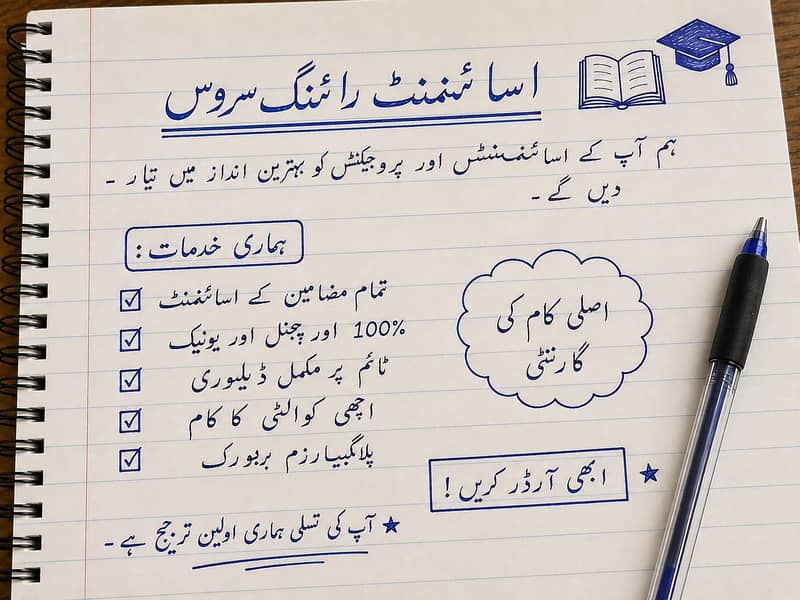 اسائنمنٹ رائنگ سروس
ہم آپ کے اسائنمنٹس اور پروجیکٹس کو بہترین انداز میں تیار ۔
دیں گے ۔
ہماری خدمات :
تمام مضامین کے اسائنمنٹ
100% اور چجنل اور یونیک
ٹائم پر مکمل ڈیلیوری
اچھی کوالٹی کا کام
اصلی کام کی
گارنٹی
ابھی آرڈر کریں !
آپ کی تسلی ہماری اولین ترجیح ہے ۔